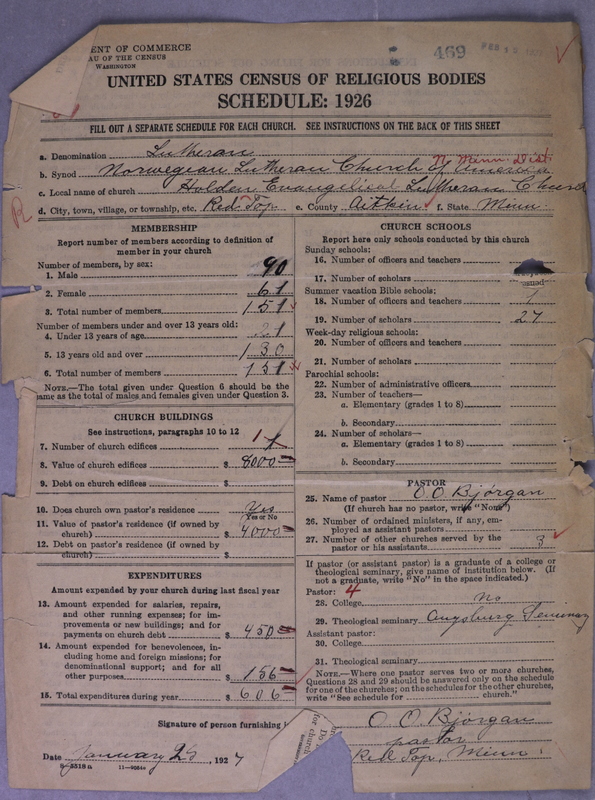 ENT OF COMMERCE
AU OF THE CENSUS
WASHINGTON
469
FEB 15
UNITED STATES CENSUS OF RELIGIOUS BODIES
SCHEDULE: 1926
FILL OUT A SEPARATE SCHEDULE FOR EACH CHURCH. SEE INSTRUCTIONS ON THE BACK OF THIS SHEET
a. Denomination Lutheran
b. Synod Norwegian Lutheran Church of America N. Minn. Dist.
c. Local name of church Holden Evangelical Lutheran Church
d. City, town, village, or township, etc. Red Top e. County Aitkin f. State Minn.
R
MEMBERSHIP
Report number of members according to definition of
member in your church
Number of members, by sex:
1. Male 90
2. Female 61
3. Total number of members 151
Number of members under and over 13 years old:
4. Under 13 years of age 21
5. 13 years old and over 130
6. Total number of members 151
NOTE.—The total given under Question 6 should be the
same as the total of males and females given under Question 3.
CHURCH BUILDINGS
See instructions, paragraphs 10 to 12
7. Number of church edifices 1
8. Value of church edifices $ 8000
9. Debt on church edifices $
10. Does church own pastor's residence Yes
Yes or No
11. Value of pastor's residence (if owned by
church) $ 4000
12. Debt on pastor's residence (if owned by
church) $
EXPENDITURES
Amount expended by your church during last fiscal year
13. Amount expended for salaries, repairs,
and other running expenses; for im-
provements or new buildings; and for
payments on church debt $ 450
14. Amount expended for benevolences, in-
cluding home and foreign missions; for
denominational support; and for all
other purposes $ 156
15. Total expenditures during year $ 606
CHURCH SCHOOLS
Report here only schools conducted by this church
Sunday schools:
16. Number of officers and teachers
17. Number of scholars
Summer vacation Bible schools:
18. Number of officers and teachers 1
19. Number of scholars 27
Week-day religious schools:
20. Number of officers and teachers
21. Number of scholars
Parochial schools:
22. Number of administrative officers
23. Number of teachers—
a. Elementary (grades 1 to 8)
b. Secondary
24. Number of scholars—
a. Elementary (grades 1 to 8)
b. Secondary
PASTOR
25. Name of pastor O. O. Bjórgan
(If church has no pastor, write "None")
26. Number of ordained ministers, if any, em-
ployed as assistant pastors
27. Number of other churches served by the
pastor or his assistants 3
If pastor (or assistant pastor) is a graduate of a college or
theological seminary, give name of institution below. (If
not a graduate, write "No" in the space indicated.)
Pastor: 4
28. College no
29. Theological seminary Augsburg Seminary
Assistant pastor:
30. College
31. Theological seminary
NOTE.—Where one pastor serves two or more churches,
Questions 28 and 29 should be answered only on the schedule
for one of the churches; on the schedules for the other churches,
write "See schedule for church."
Signature of person furnishing O. O. Bjórgan
pastor
Red Top, Minn.
Date January 25, 1927
8-5318a